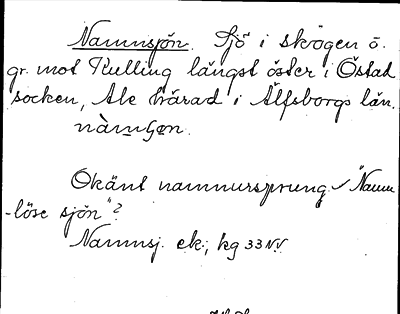 Namnsjön. Sjö i skogen ö.
gr. mot Kulling längst öster i Östad
socken, Ale härad i Älfsborgs län.
Okänt namnursprung. "Namn
-löse sjön"?
Namnsj. ek.; hg 33 NV